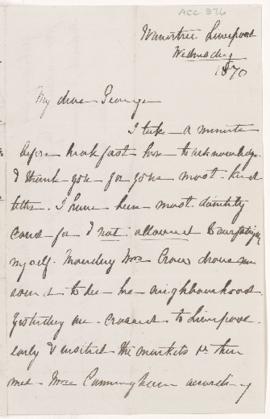 ACC 876
Wavertree Liverpool
Wednesday
1870
My dear George
I take a minute
before breakfast here to acknowledge
& thank you for your most kind
letter. I have been most daintily
cared for & not allowed to
myself. Monday Mrs drove me
round to see the neighbourhood
Yesterday we crossed to Liverpool
early & visited the markets & then
met Mrs Cunningham according